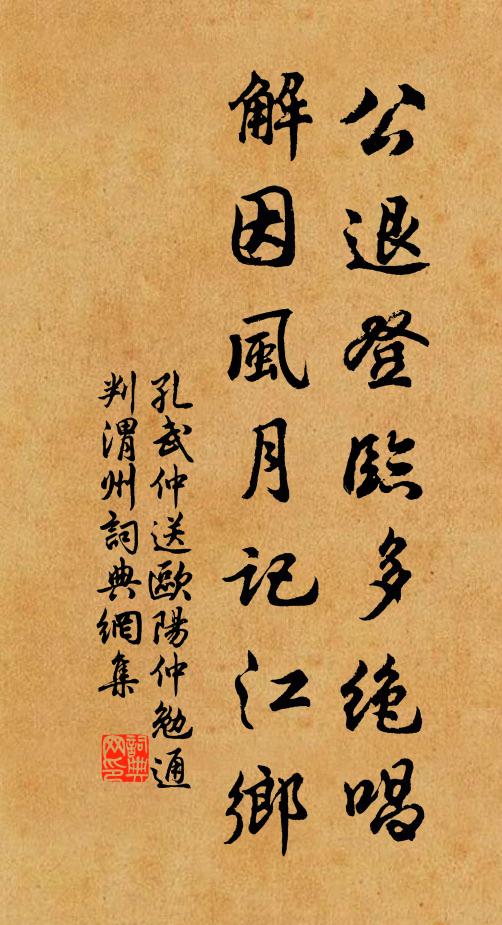 公退登臨多絶唱
解因風月記江鄉
孔武仲送歐陽仲勉通
判渭州詞典網集
詞典
网印